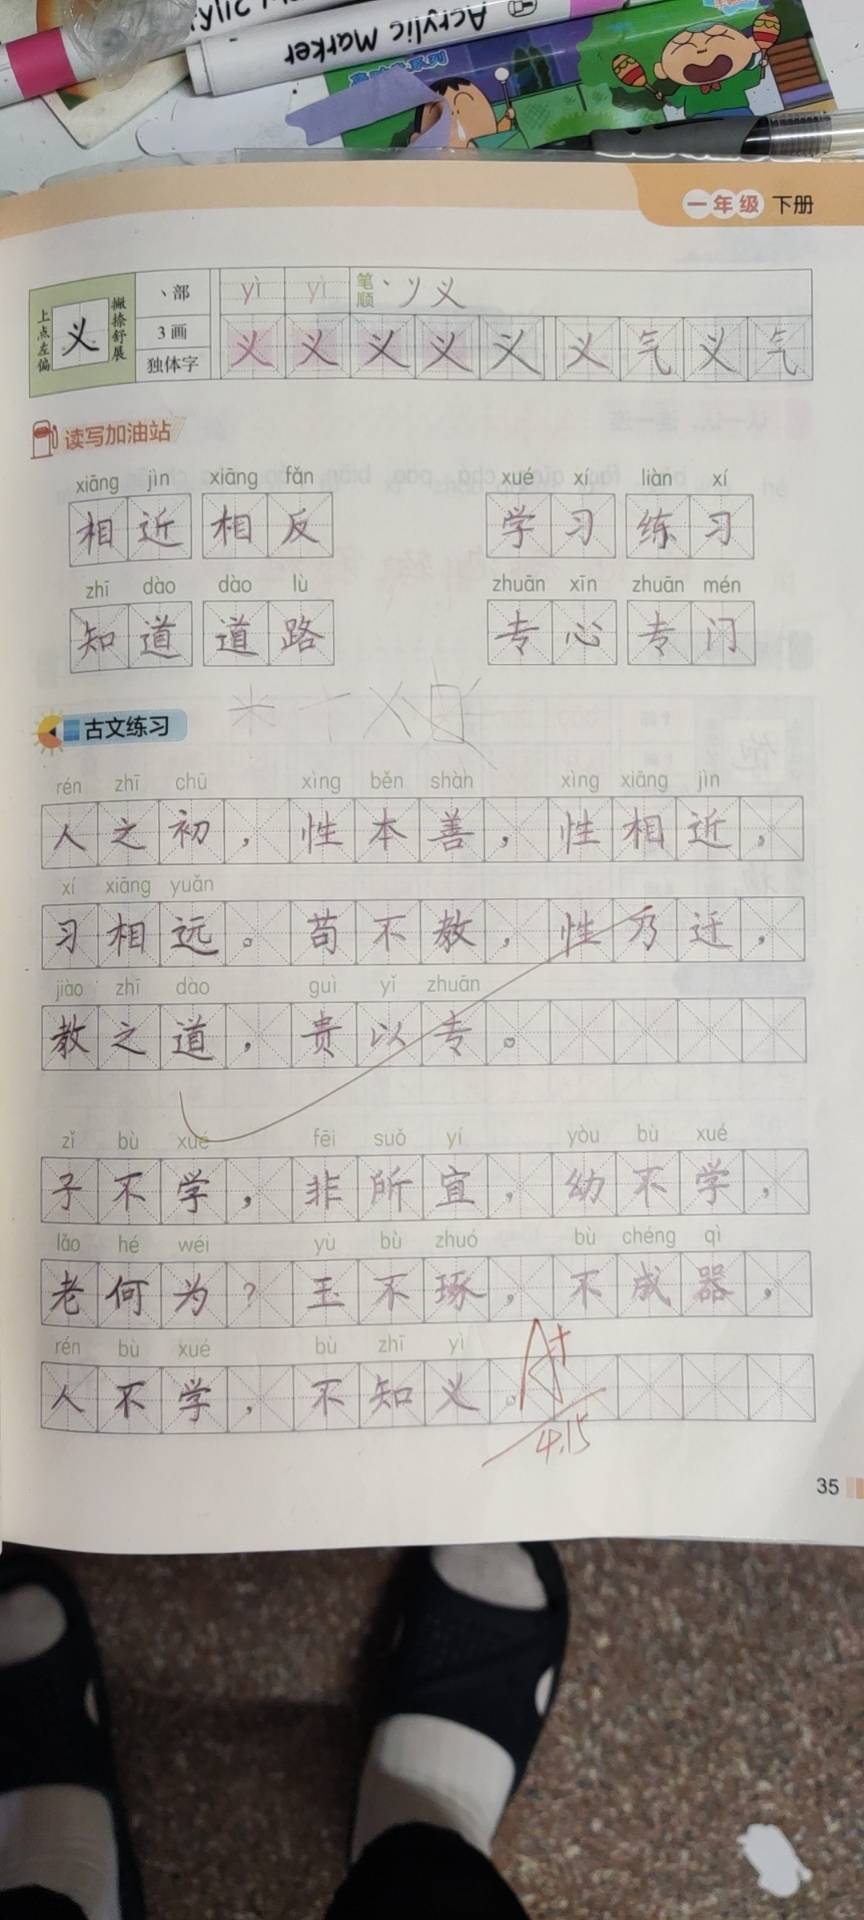 Acrylic Marker
一年级 下册
上点左偏 义 撇捺舒展
丶部 yì yì 笔顺 丶 丿 义
3画
独体字
义 义 义 义 义 义 气 义 气
读写加油站
xiāng jìn xiāng fǎn xué xí liàn xí
相近 相反 学习 练习
zhī dào dào lù zhuān xīn zhuān mén
知道 道路 专心 专门
古文练习
rén zhī chū xìng běn shàn xìng xiāng jìn
人之初，性本善，性相近，
xí xiāng yuǎn
习相远。苟不教，性乃迁，
jiào zhī dào guì yǐ zhuān
教之道，贵以专。
zǐ bù xué fēi suǒ yí yòu bù xué
子不学，非所宜，幼不学，
lǎo hé wéi yù bù zhuó bù chéng qì
老何为？玉不琢，不成器，
rén bù xué bù zhī yì
人不学，不知义。
A+
4.15
35